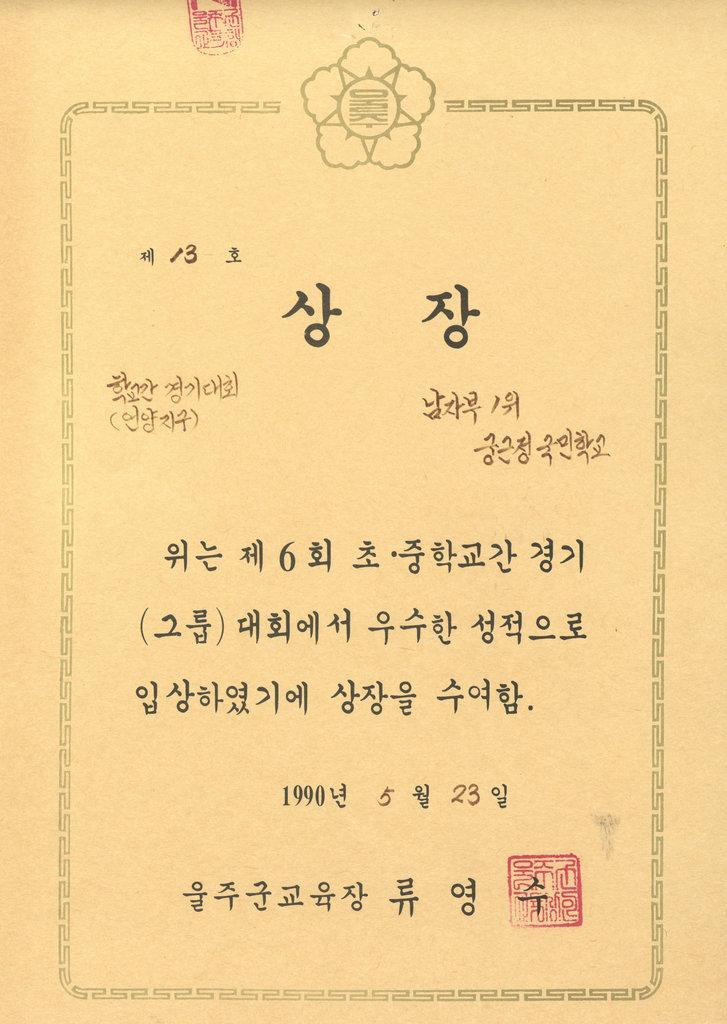 제 13 호
상 장
학교간 경기대회
(언양지구)
남자부 1위
궁근정 국민학교
위는 제 6 회 초·중학교간 경기
(그룹) 대회에서 우수한 성적으로
입상하였기에 상장을 수여함.
1990년 5 월 23 일
울주군교육장 류 영 수